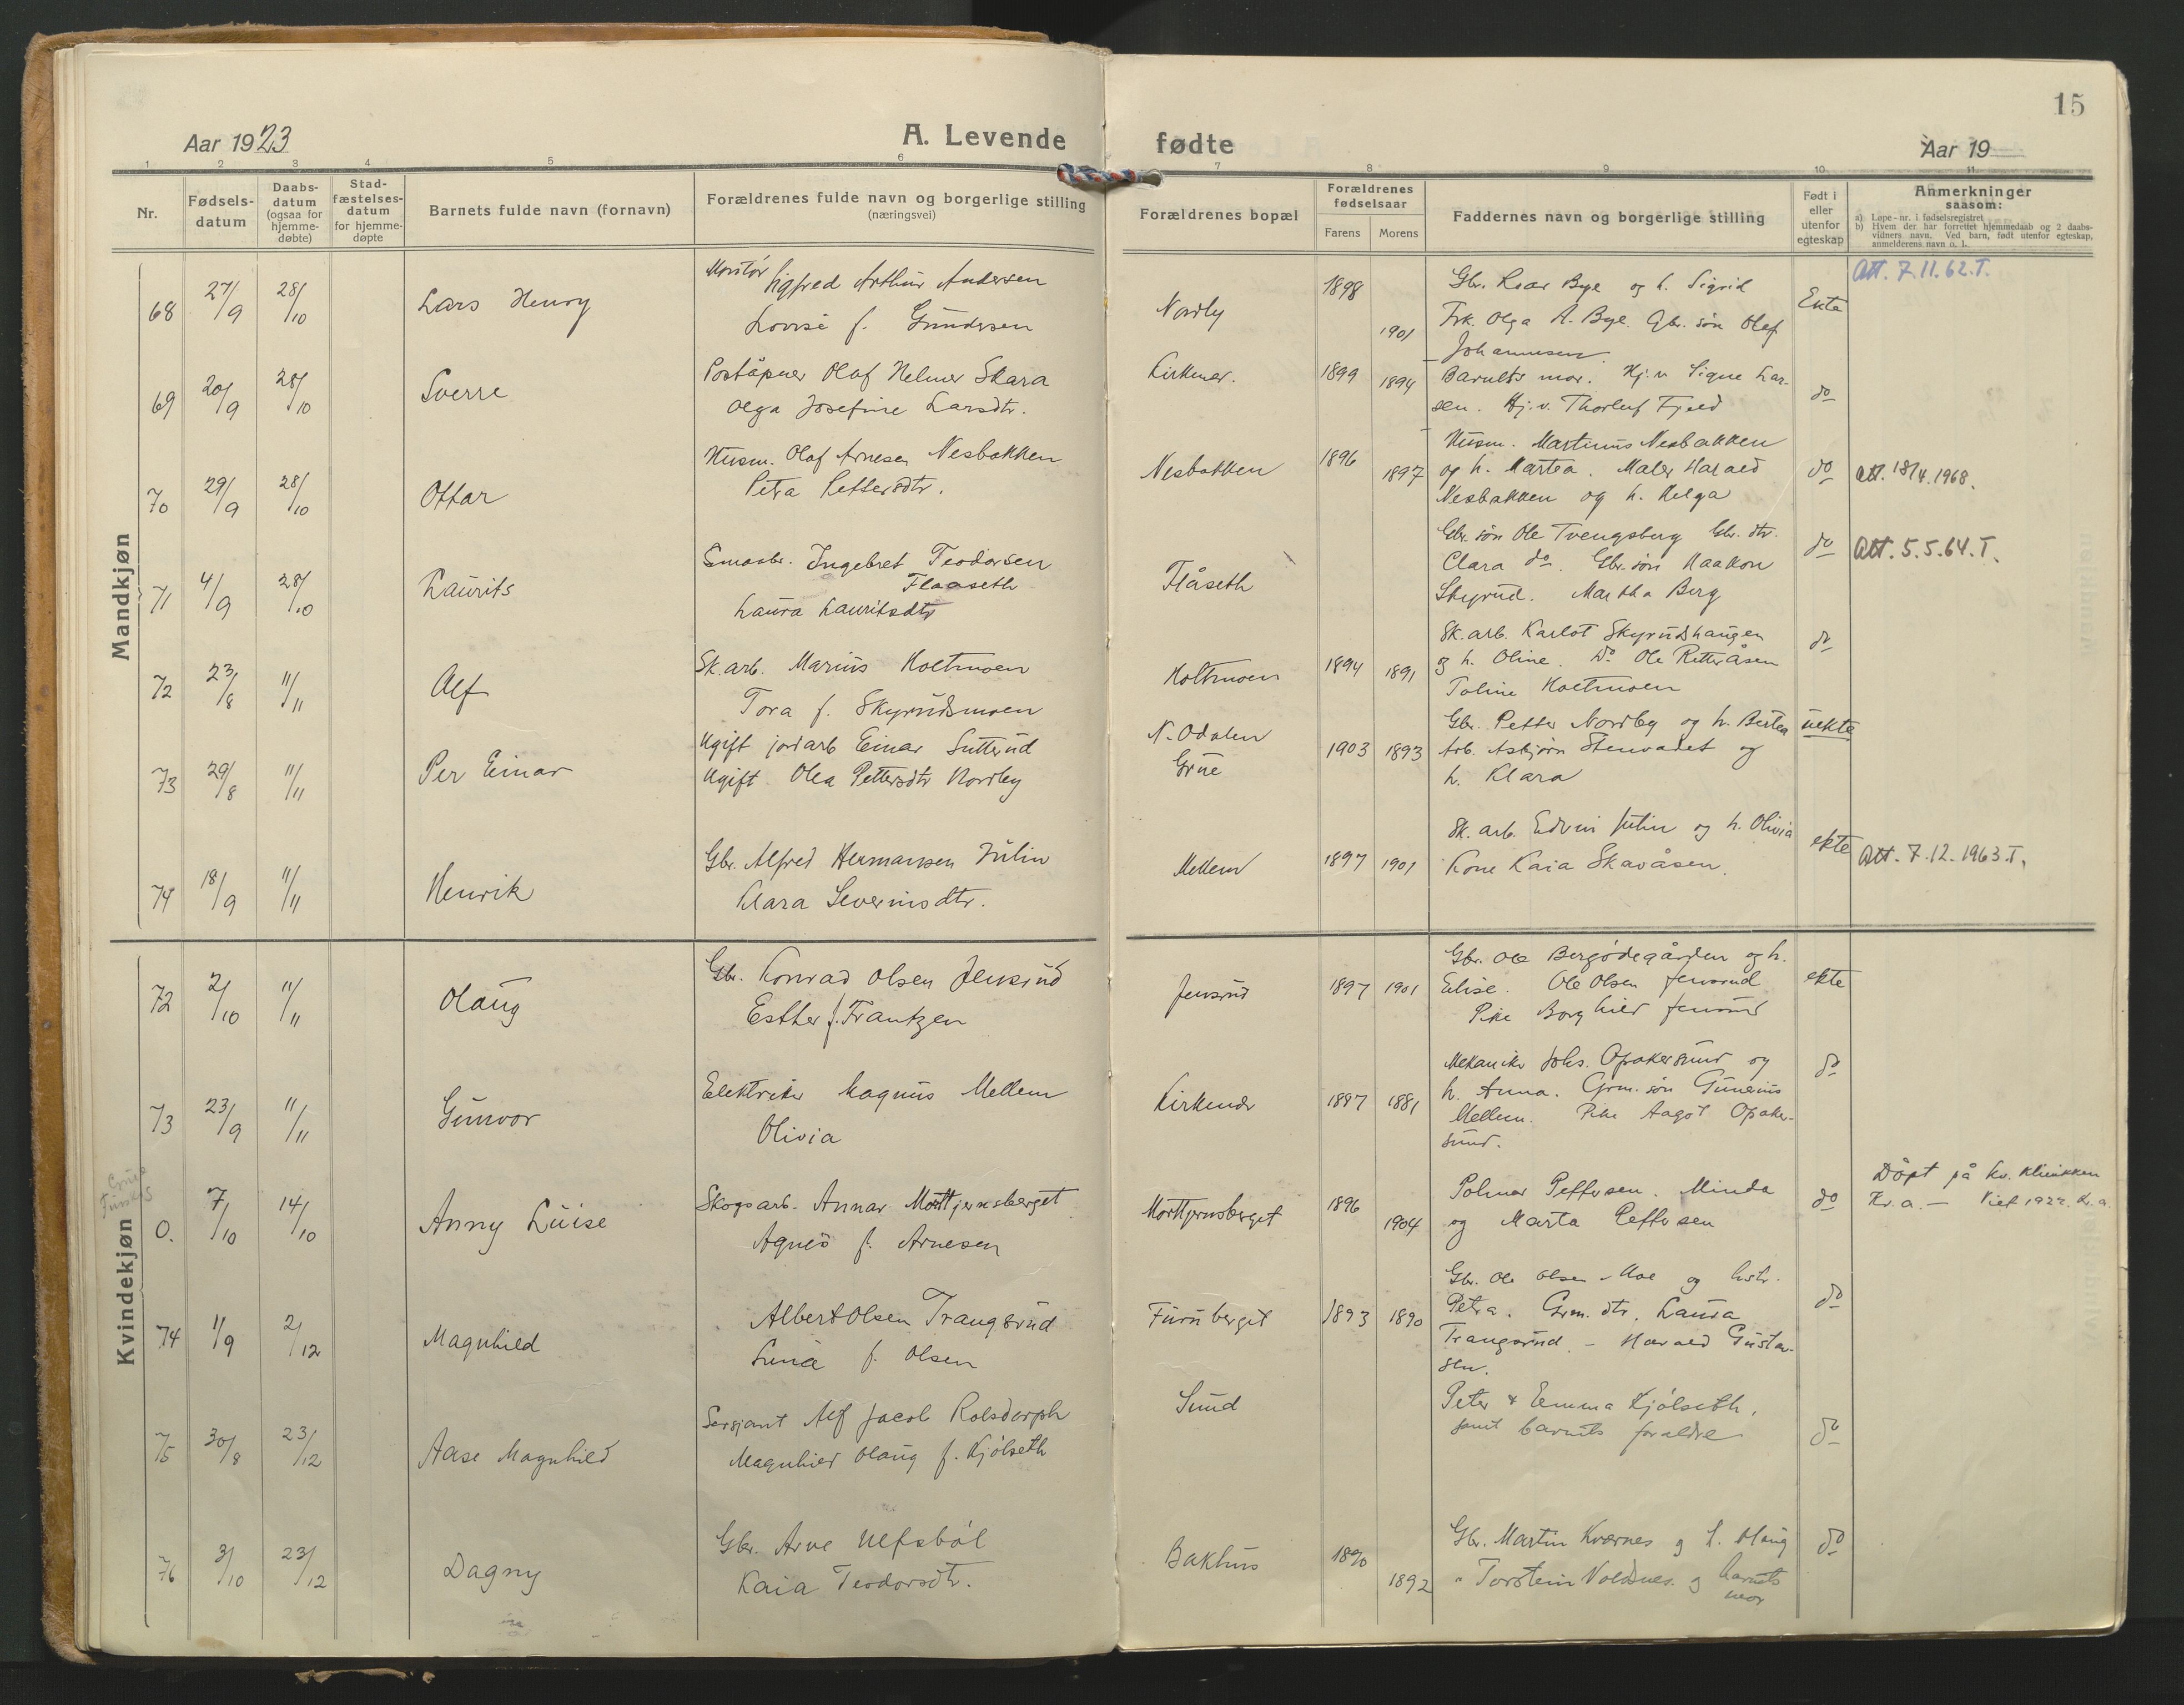 15
Aar 1923
A. Levende fødte
Aar 19
1 2 3 4 5 6 7 8 9 10 11
Nr.
Fødsels-
datum
Daabs-
datum
(ogsaa for
hjemme-
døbte)
Stad-
fæstelses-
datum
for hjemme-
døpte
Barnets fulde navn (fornavn)
Forældrenes fulde navn og borgerlige stilling
(næringsvei)
Forældrenes bopæl
Forældrenes
fødselsaar
Farens Morens
Faddernes navn og borgerlige stilling
Født i
eller
utenfor
egteskap
Anmerkninger
saasom:
a) Løpe-nr. i fødselsregistret
b) Hvem der har forrettet hjemmedaab og 2 daabs-
vidners navn. Ved barn, født utenfor egteskap,
anmelderens navn o. l.
Mandkjøn
68 27/9 28/10 Lars Henry
Montør Sigfred Arthur Andersen
Lovise f. Gundersen
Nordby 1898 1901
Gbr. Roar Bye og h. Sigrid
Frk. Olga A. Bye. Gbr. søn Olaf
Johannesen
Ekte
Att. 7.11.62.T.
69 20/9 28/10 Sverre
Poståpner Olaf Helmer Skara
Olga Josefine Larsdtr.
Kirkenær. 1899 1894
Barnets mor. Hj.v. Signe Lar-
sen. Hj.v. Thorleif Fjeld
do
70 29/9 28/10 Ottar
Husm. Olaf Arnesen Nesbakken
Petra Pettersdtr.
Nesbakken 1896 1897
Husm. Martinus Nesbakken
og h. Martea. Maler Harald
Nesbakken og h. Helga
do
Att. 18/4.1968.
71 4/9 28/10 Laurits
Smaabr. Ingebret Teodorsen
Flaaseth
Laura Lauritsdtr
Flåseth
Gbr. søn Ole Tvengsberg Gbr. dtr.
Clara do. Gbr. søn Haakon
Skyrud. Martha Berg
do
Att. 5.5.64.T.
72 23/8 11/11 Alf
Sk.arb. Marius Holtmoen
Tora f. Skyrudsmoen
Holtmoen 1894 1891
Sk.arb. Karlot Skyrudshaugen
og h. Oline. Do Ole Ritteråsen
Toline Holtmoen
do
73 29/8 11/11 Per Einar
Ugift jordarb Einar Sutterud
Ugift Olea Pettersdtr Nordby
N. Odalen
Grue
1903 1893
Gbr. Petter Nordby og h. Bertea
Arb. Asbjørn Stenvadet og
h. Klara
uekte
74 18/9 11/11 Henrik
Gbr. Alfred Hermansen Julin
Klara Severinsdtr.
Mellem 1897 1901
Sk. arb. Edvin Julin og h. Olivia
Kone Kaia Skavåsen.
ekte
Att. 7.12.1963.T.
Kvindekjøn
72 2/10 11/11 Olaug
Gbr. Konrad Olsen Jensrud
Esther f. Frantzen
Jensrud 1897 1901
Gbr. Ole Bergødegården og h.
Elise. Ole Olsen Jensrud
Pike Borghild Jensrud
ekte
73 23/9 11/11 Gunvor
Elektriker Magnus Mellem
Olivia
Kirkenær 1887 1881
Mekaniker Johs. Opakersund og
h. Anna. Grm. søn Gunerius
Mellem. Pike Aagot Opaker-
sund.
do
0. 7/10 14/10 Anny Luise
Skogsarb. Annar Morttjernsberget
Agnes f. Arnesen
Morttjernsberget 1896 1904
Polmar Pettersen. Minda
og Marta Pettersen
do
Döpt på kv. klinikken
Kr.a. – Viet 1922. Kr.a.
74 1/9 2/12 Magnhild
Albert Olsen Trangsrud
Lina f. Olsen
Furuberget 1893 1890
Gbr. Ole Olsen Moe og hstr.
Petra. Grm. dtr. Laura
Trangsrud. – Harald Gustav-
sen.
do
75 30/8 23/12 Aase Magnhild
Sersjant Alf Jacob Rolsdorph
Magnhild Olaug f. Kjölseth
Sund
Peter & Emma Kjölseth,
samt barnets foraldre
do
76 3/10 23/12 Dagny
Gbr. Arve Ulfsböl
Kaia Teodorsdtr.
Bakhus 1890 1892
Gbr. Martin Kværnes og h. Olaug
" Torstein Voldnes. og barnets
mor
do